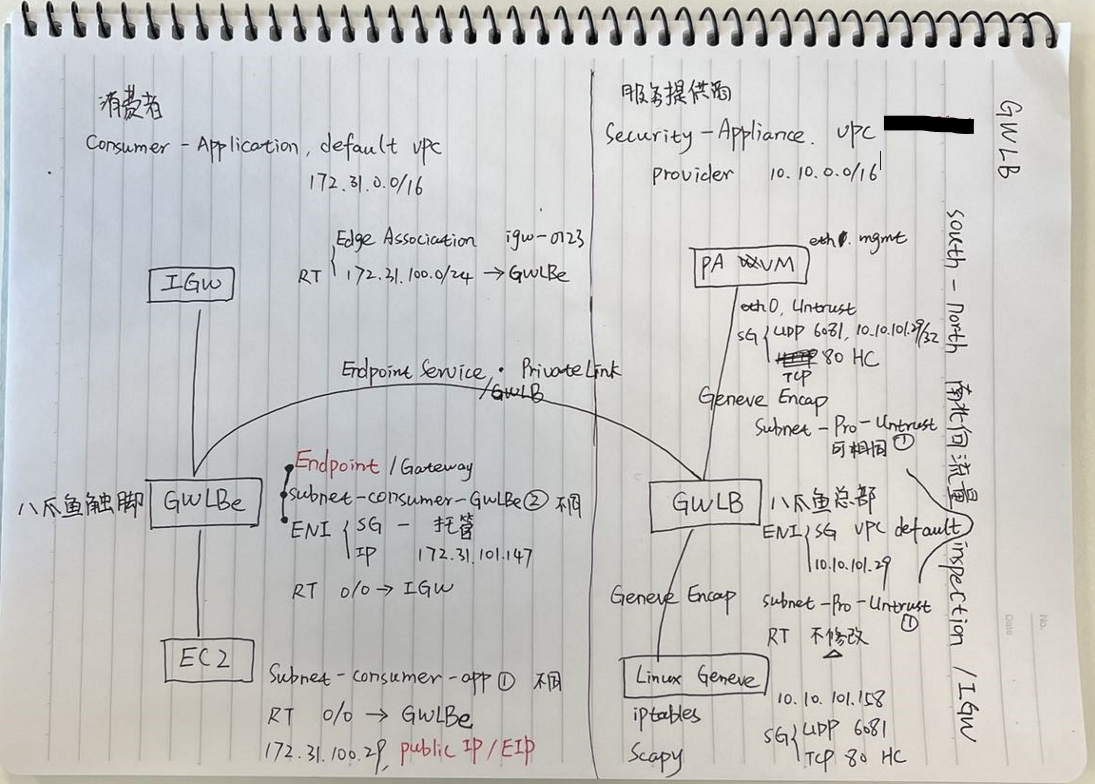 消费者
Consumer - Application, default vpc
172.31.0.0/16
Edge Association igw-0123
RT 172.31.100.0/24 → GWLBe
IGW
Endpoint Service · PrivateLink
/GWLB
八爪鱼触脚 GWLBe
Endpoint /Gateway
subnet-consumer-GWLBe ② 不同
ENI SG - 托管
IP 172.31.101.147
RT 0/0 → IGW
EC2
Subnet-consumer-app ① 不同
RT 0/0 → GWLBe
172.31.100.29, public IP / EIP
服务提供商
Security-Appliance. vpc
provider 10.10.0.0/16
PA VM
eth1. mgmt
eth0, Untrust
SG UDP 6081, 10.10.101.29/32
80 HC
TCP
Geneve Encap
Subnet-Pro-Untrust
可相同 ①
GWLB 八爪鱼总部
ENI SG vpc default
10.10.101.29
Geneve Encap
subnet-Pro-Untrust
①
RT 不修改
Linux Geneve
iptables
Scapy
10.10.101.158
SG UDP 6081
TCP 80 HC
GWLB
south-north 南北向流量 inspection / IGW
No.
Date